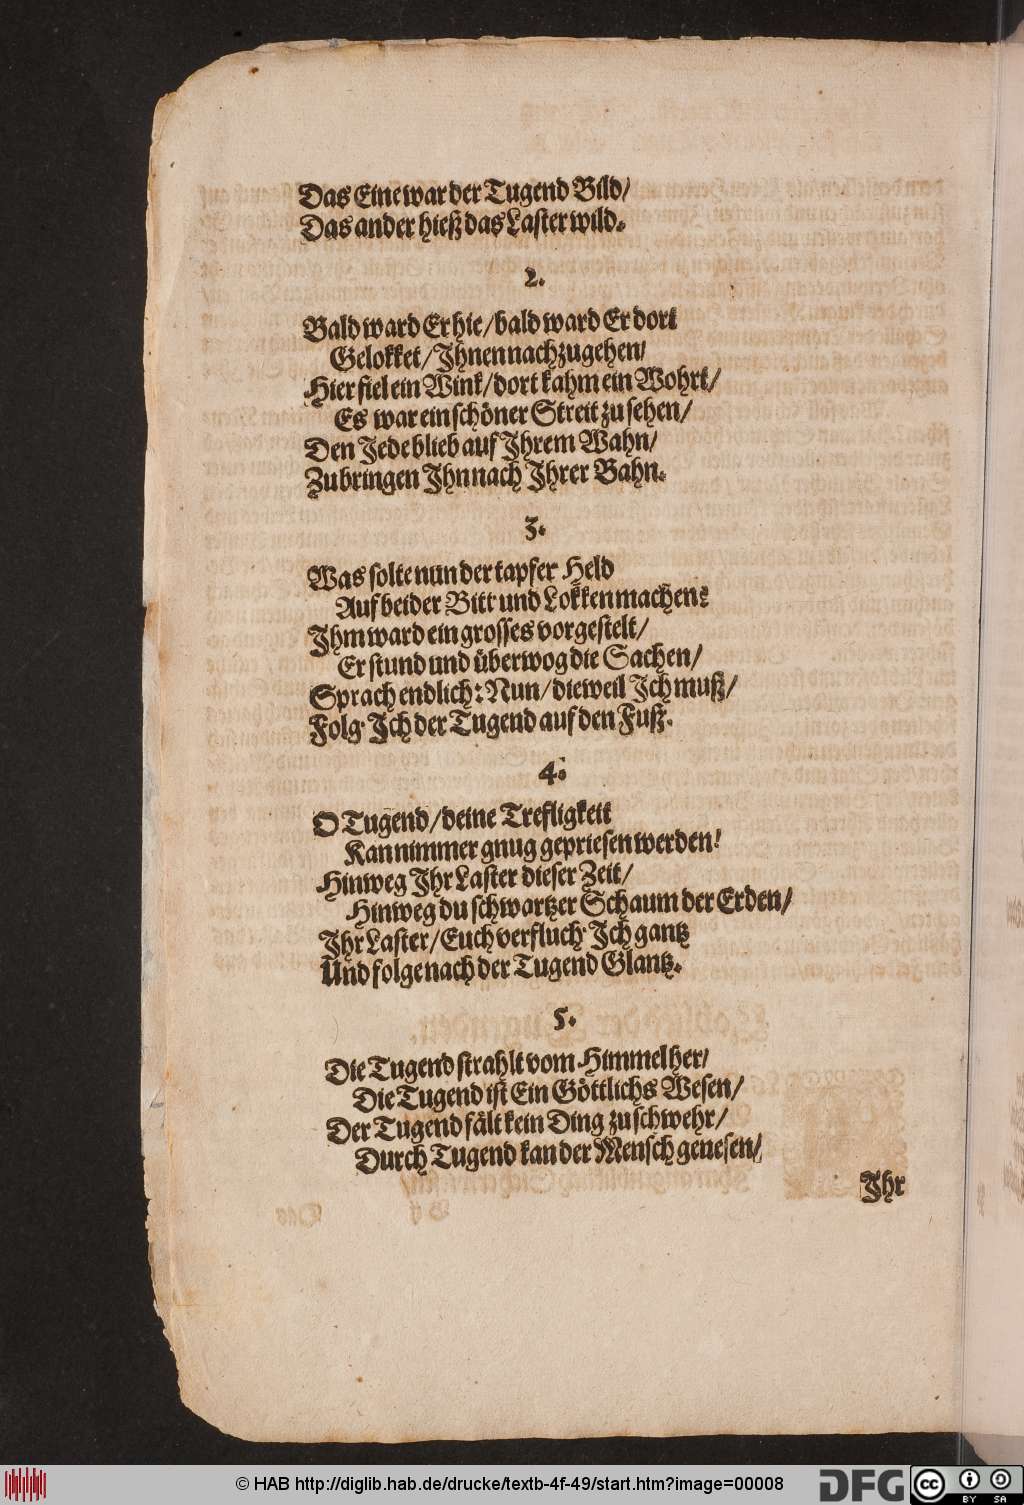 Das Eine war der Tugend Bild/
Das ander hieß das Laster wild.
2.
Bald ward Er hie/bald ward Er dort
Gelokket/Ihnen nachzugehen/
Hier fiel ein Wink/dort kahm ein Wohrt/
Es war ein schöner Streit zu sehen/
Den Jede blieb auf Ihrem Wahn/
Zubringen Ihn nach Ihrer Bahn.
3.
Was solte nun der tapfer Held
Auf beider Bitt und Lokken machen?
Ihm ward ein grosses vorgestelt/
Er stund und überwog die Sachen/
Sprach endlich: Nun/dieweil Ich muß/
Folg' Ich der Tugend auf den Fuß.
4.
O Tugend/deine Trefligkeit
Kan nimmer gnug gepriesen werden!
Hinweg Ihr Laster dieser Zeit/
Hinweg du schwartzer Schaum der Erden/
Ihr Laster/Euch verfluch' Ich gantz
Und folge nach der Tugend Glantz.
5.
Die Tugend strahlt vom Himmel her/
Die Tugend ist Ein Göttlichs Wesen/
Der Tugend fält kein Ding zu schwehr/
Durch Tugend kan der Mensch genesen/
Ihr
© HAB http://diglib.hab.de/drucke/textb-4f-49/start.htm?image=00008
DFG
cc
BY SA